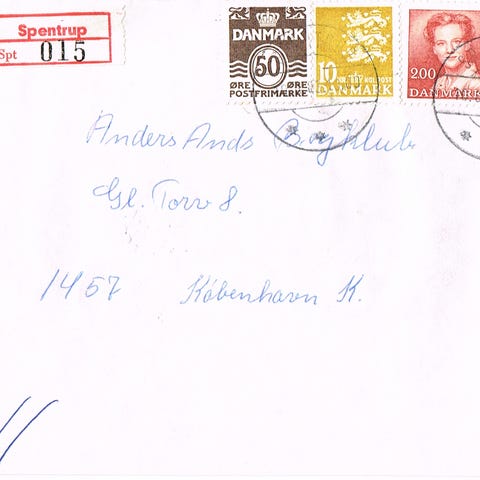 Spentrup
Spt 015
DANMARK
50
ØRE ØRE
POSTFRIMÆRKE
10
DANMARK
200
DANMARK
Anders Ands Bogklub
Gl. Torv 8.
1457 København K.